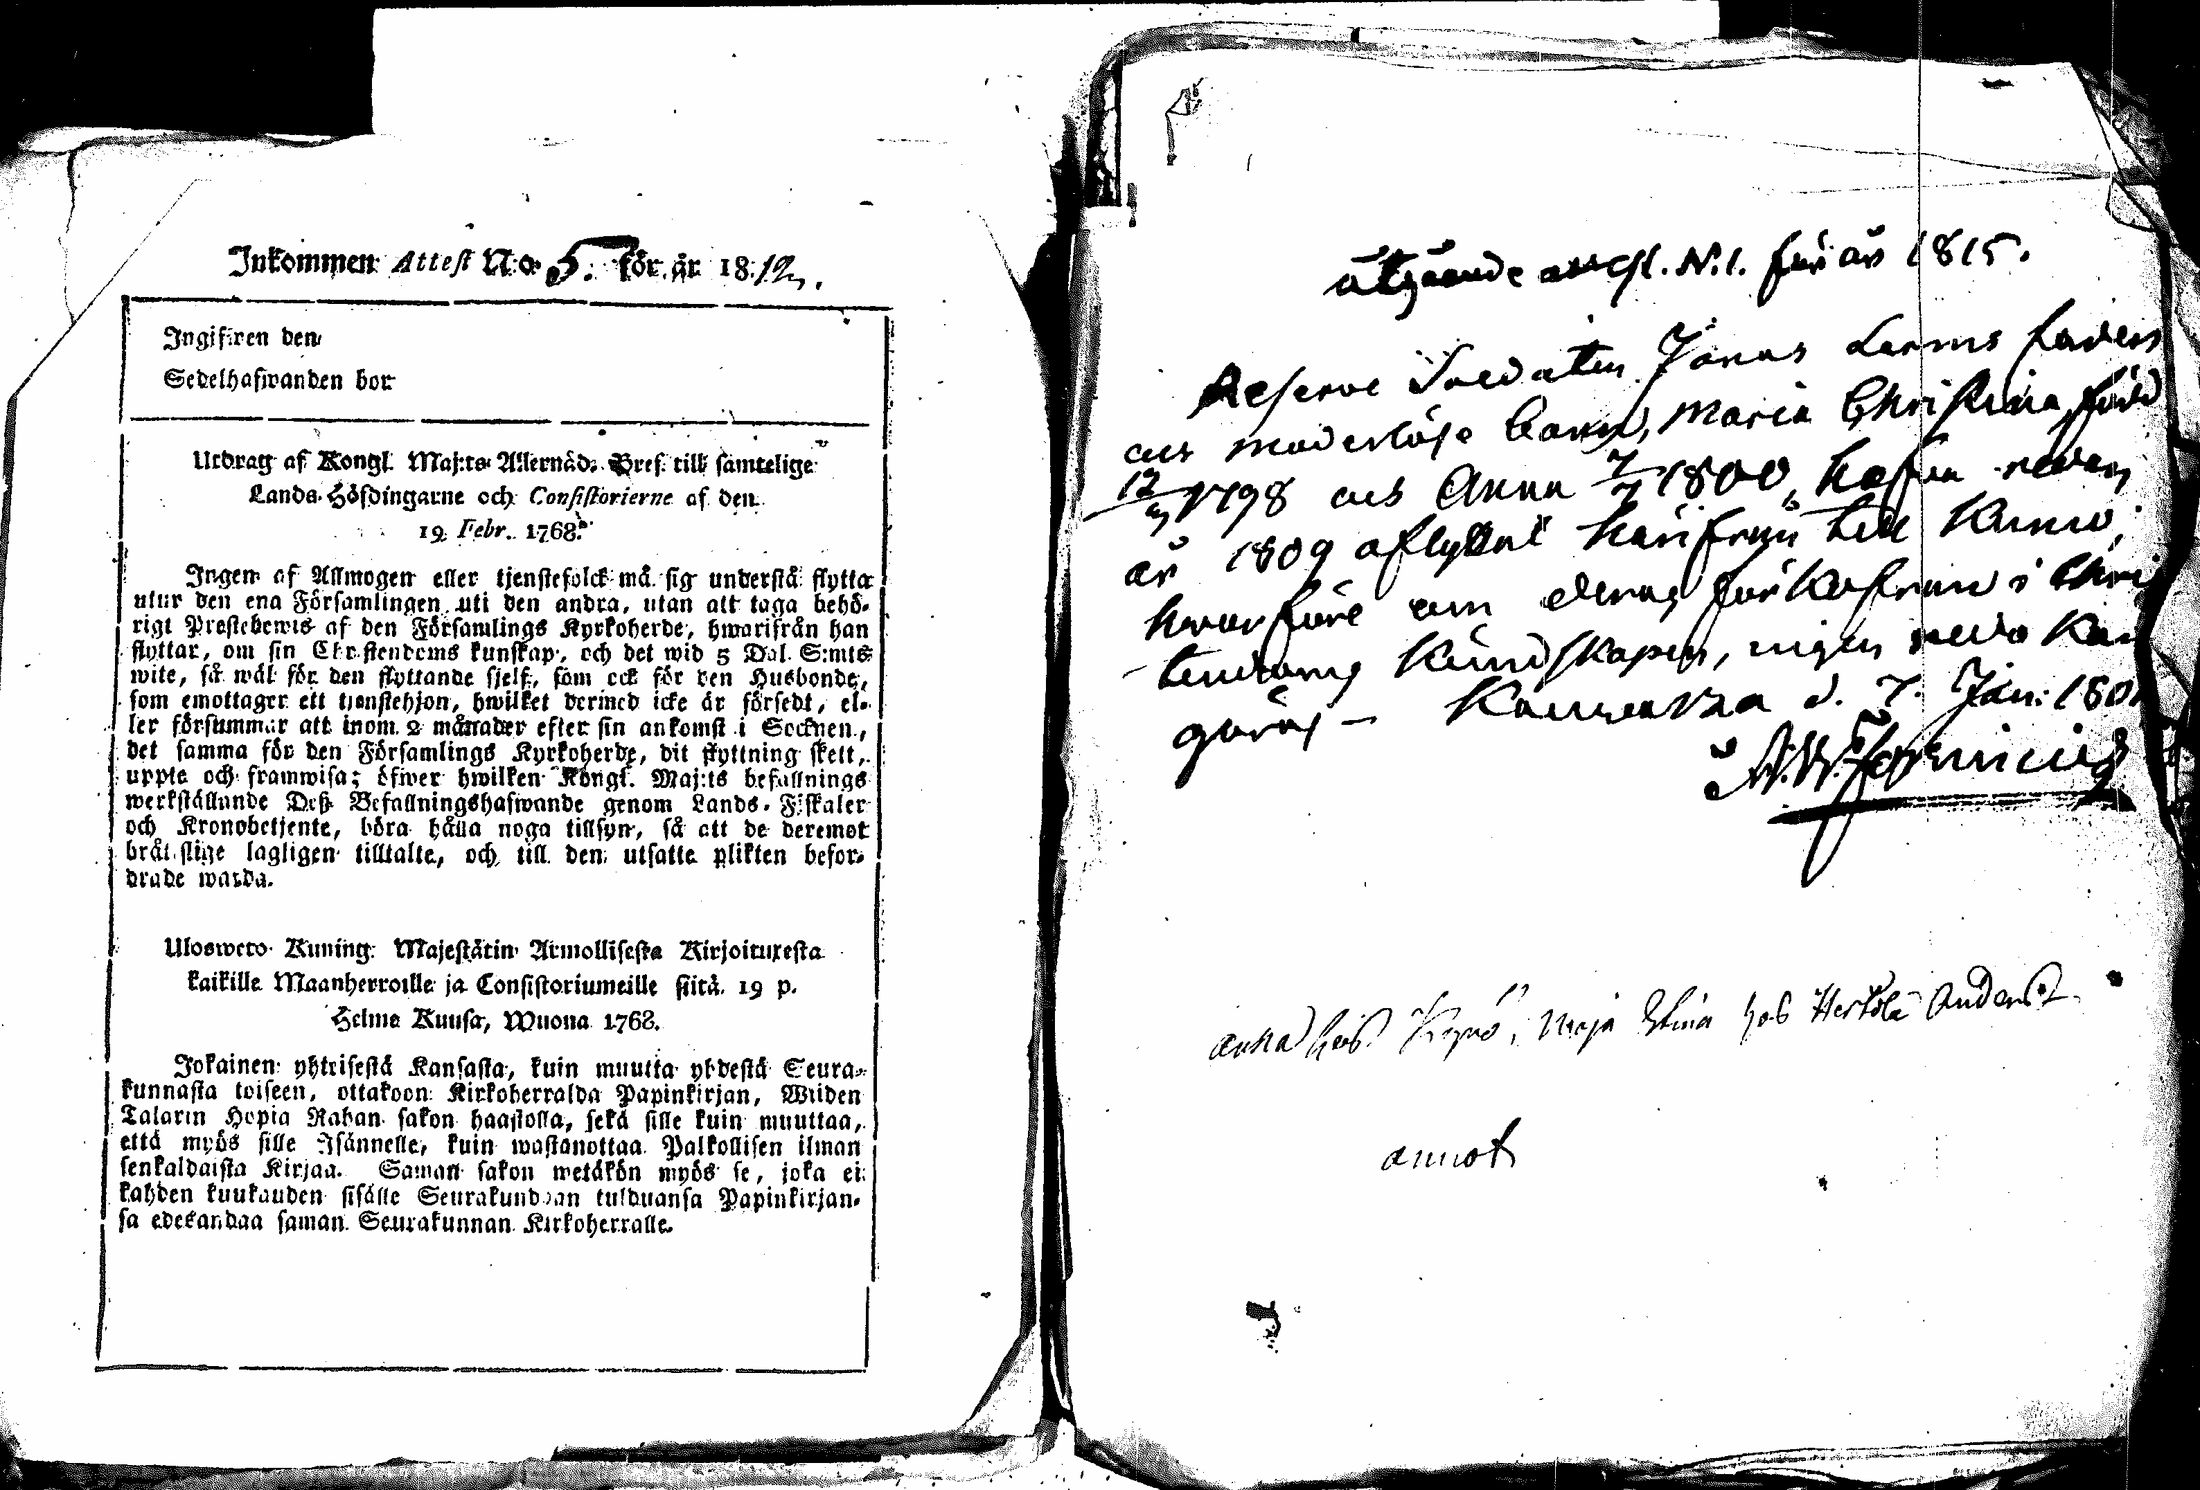 Inkommen Attest N:o 5. för år 1812.
Ingifwen den
Sedelhafwanden bor
Utdrag af Kongl. Maj:ts Allernåd. Bref till samtelige
Lands-Höfdingarne och Consistorierne af den
19 Febr. 1768.
Ingen af Allmogen eller tjenstefolck må sig understå flytta
utur den ena Församlingen uti den andra, utan att taga behö-
rigt Prestebewis af den Församlings Kyrkoherde, hwarifrån han
flyttar, om sin Christendoms kunskap, och det wid 5 Dal. S:mts
wite, så wäl för den flyttande sjelf, som ock för den Husbonde,
som emottager ett tjenstehjon, hwilket dermed icke är försedt, el-
ler försummar att inom 2 månader efter sin ankomst i Socknen,
det samma för den Församlings Kyrkoherde, dit flyttning skett,
uppte och framwisa; öfwer hwilken Kongl. Maj:ts befallnings
werkställande Deß Befallningshafwande genom Lands-Fiskaler
och Kronobetjente, böra hålla noga tillsyn, så att de deremot
brätslige lagligen tilltalte, och till den utsatte plikten befor-
drade warda.
Uloswero Kuning. Majestätin Armollisesta Kirjoituxesta
kaikille Maanherroille ja Consistoriumeille siitä 19 p.
Helme Kuusa, Wuona 1768.
Jokainen yhteisestä Kansasta, kuin muutta yhdestä Seura-
kunnasta toiseen, ottakoon Kirkoherralda Papinkirjan, Wiiden
Talarin Hopia Rahan sakon haastolla, sekä sille kuin muuttaa,
että myös sille Isännelle, kuin wastanottaa Palkollisen ilman
senkaldaista Kirjaa. Saman sakon wetäkön myös se, joka ei
kahden kuukauden sisälle Seurakundaan tulduansa Papinkirjan-
sa edesandaa saman Seurakunnan Kirkoherralle.
utgående attest. N.1. för år 1815.
Reserve Soldaten Jonas
moderlöse barn, Maria Christina, född
12 1798 Anna 7/7 1800, hafva redan
år 1809 aflyttat härifrån till Kumo,
hvarföre om deras förkofran i Chri
stendoms kundskapen, ingen redo kan
göras - d. 7. Jan: 181
anna hos Kyrö, Maja Stina hos Herttola Anders
annot